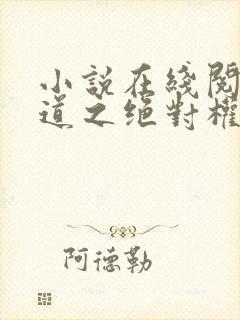 小說在綫閱
道之絕對權
阿德勒